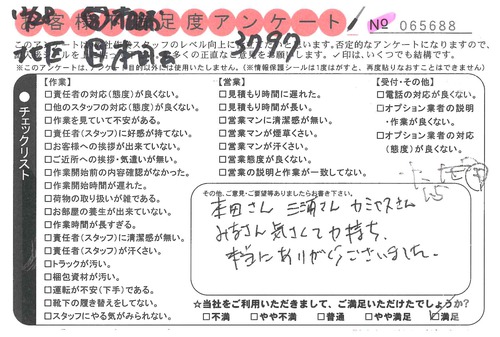 お客様満足度アンケート
No 065688
3797
※このアンケートは、アンケート目的以外には使用いたしません。(※情報保護シールは1度はがすと、再度貼りなおすことはできません)
チェックリスト
【作業】
□責任者の対応(態度)が良くない。
□他のスタッフの対応(態度)が良くない。
□作業を見ていて不安がある。
□責任者(スタッフ)に好感が持てない。
□お客様への挨拶が出来ていない。
□ご近所への挨拶・気遣いが無い。
□作業開始前の内容確認がなかった。
□作業開始時間が遅れた。
□荷物の取り扱いが雑である。
□お部屋の養生が出来ていない。
□作業時間が長すぎる。
□責任者(スタッフ)に清潔感が無い。
□責任者(スタッフ)が汗くさい。
□トラックが汚い。
□梱包資材が汚い。
□運転が不安(下手)である。
□靴下の履き替えをしてない。
□スタッフにやる気がみられない。
【営業】
□見積もり時間に遅れた。
□見積もり時間が長い。
□営業マンに清潔感が無い。
□営業マンが煙草くさい。
□営業マンが汗くさい。
□営業態度が良くない。
□営業の説明と作業が一致してない。
【受付・その他】
□電話の対応が良くない。
□オプション業者の説明
・作業が良くない。
□オプション業者の対応
(態度)が良くない。
その他、ご意見・ご要望等ありましたらお書き下さい。
本田さん 三浦さん カミヤスさん
みなさん気さくで力持ち、
本当にありがとうございました。
☆当社をご利用いただきまして、ご満足いただけたでしょうか?
□不満 □やや不満 □普通 □やや満足 □満足